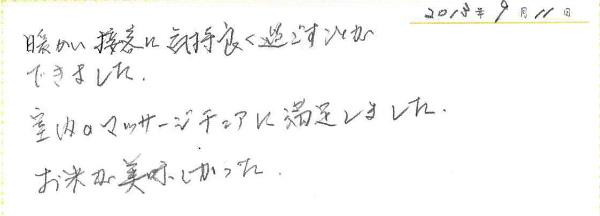 2018年9月11日
暖かい接客に気持良く過ごすことが
できました.
室内のマッサージチェアに満足しました.
お米が美味しかった.